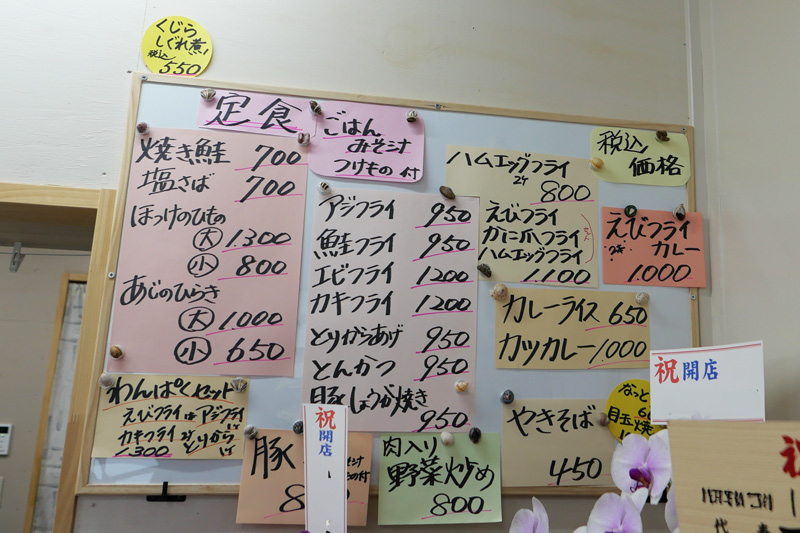 くじら
しぐれ煮
税込
550
定食
ごはん
みそ汁
つけもの 付
焼き鮭 700
塩さば 700
ほっけのひもの
大 1.300
小 800
あじのひらき
大 1.000
小 650
わんぱくセット
えびフライ1本 アジフライ
カキフライ とりから
1.300
アジフライ 950
鮭フライ 950
エビフライ 1200
カキフライ 1200
とりからあげ 950
とんかつ 950
豚しょうが焼き
950
ハムエッグフライ
2ケ 800
えびフライ
かに爪フライ
ハムエッグフライ
1.100
税込
価格
えびフライ
カレー
1000
カレーライス 650
カツカレー 1000
なっと
目玉焼
やきそば
450
豚
8
肉入り
野菜炒め
800
祝
開店
祝開店
祝